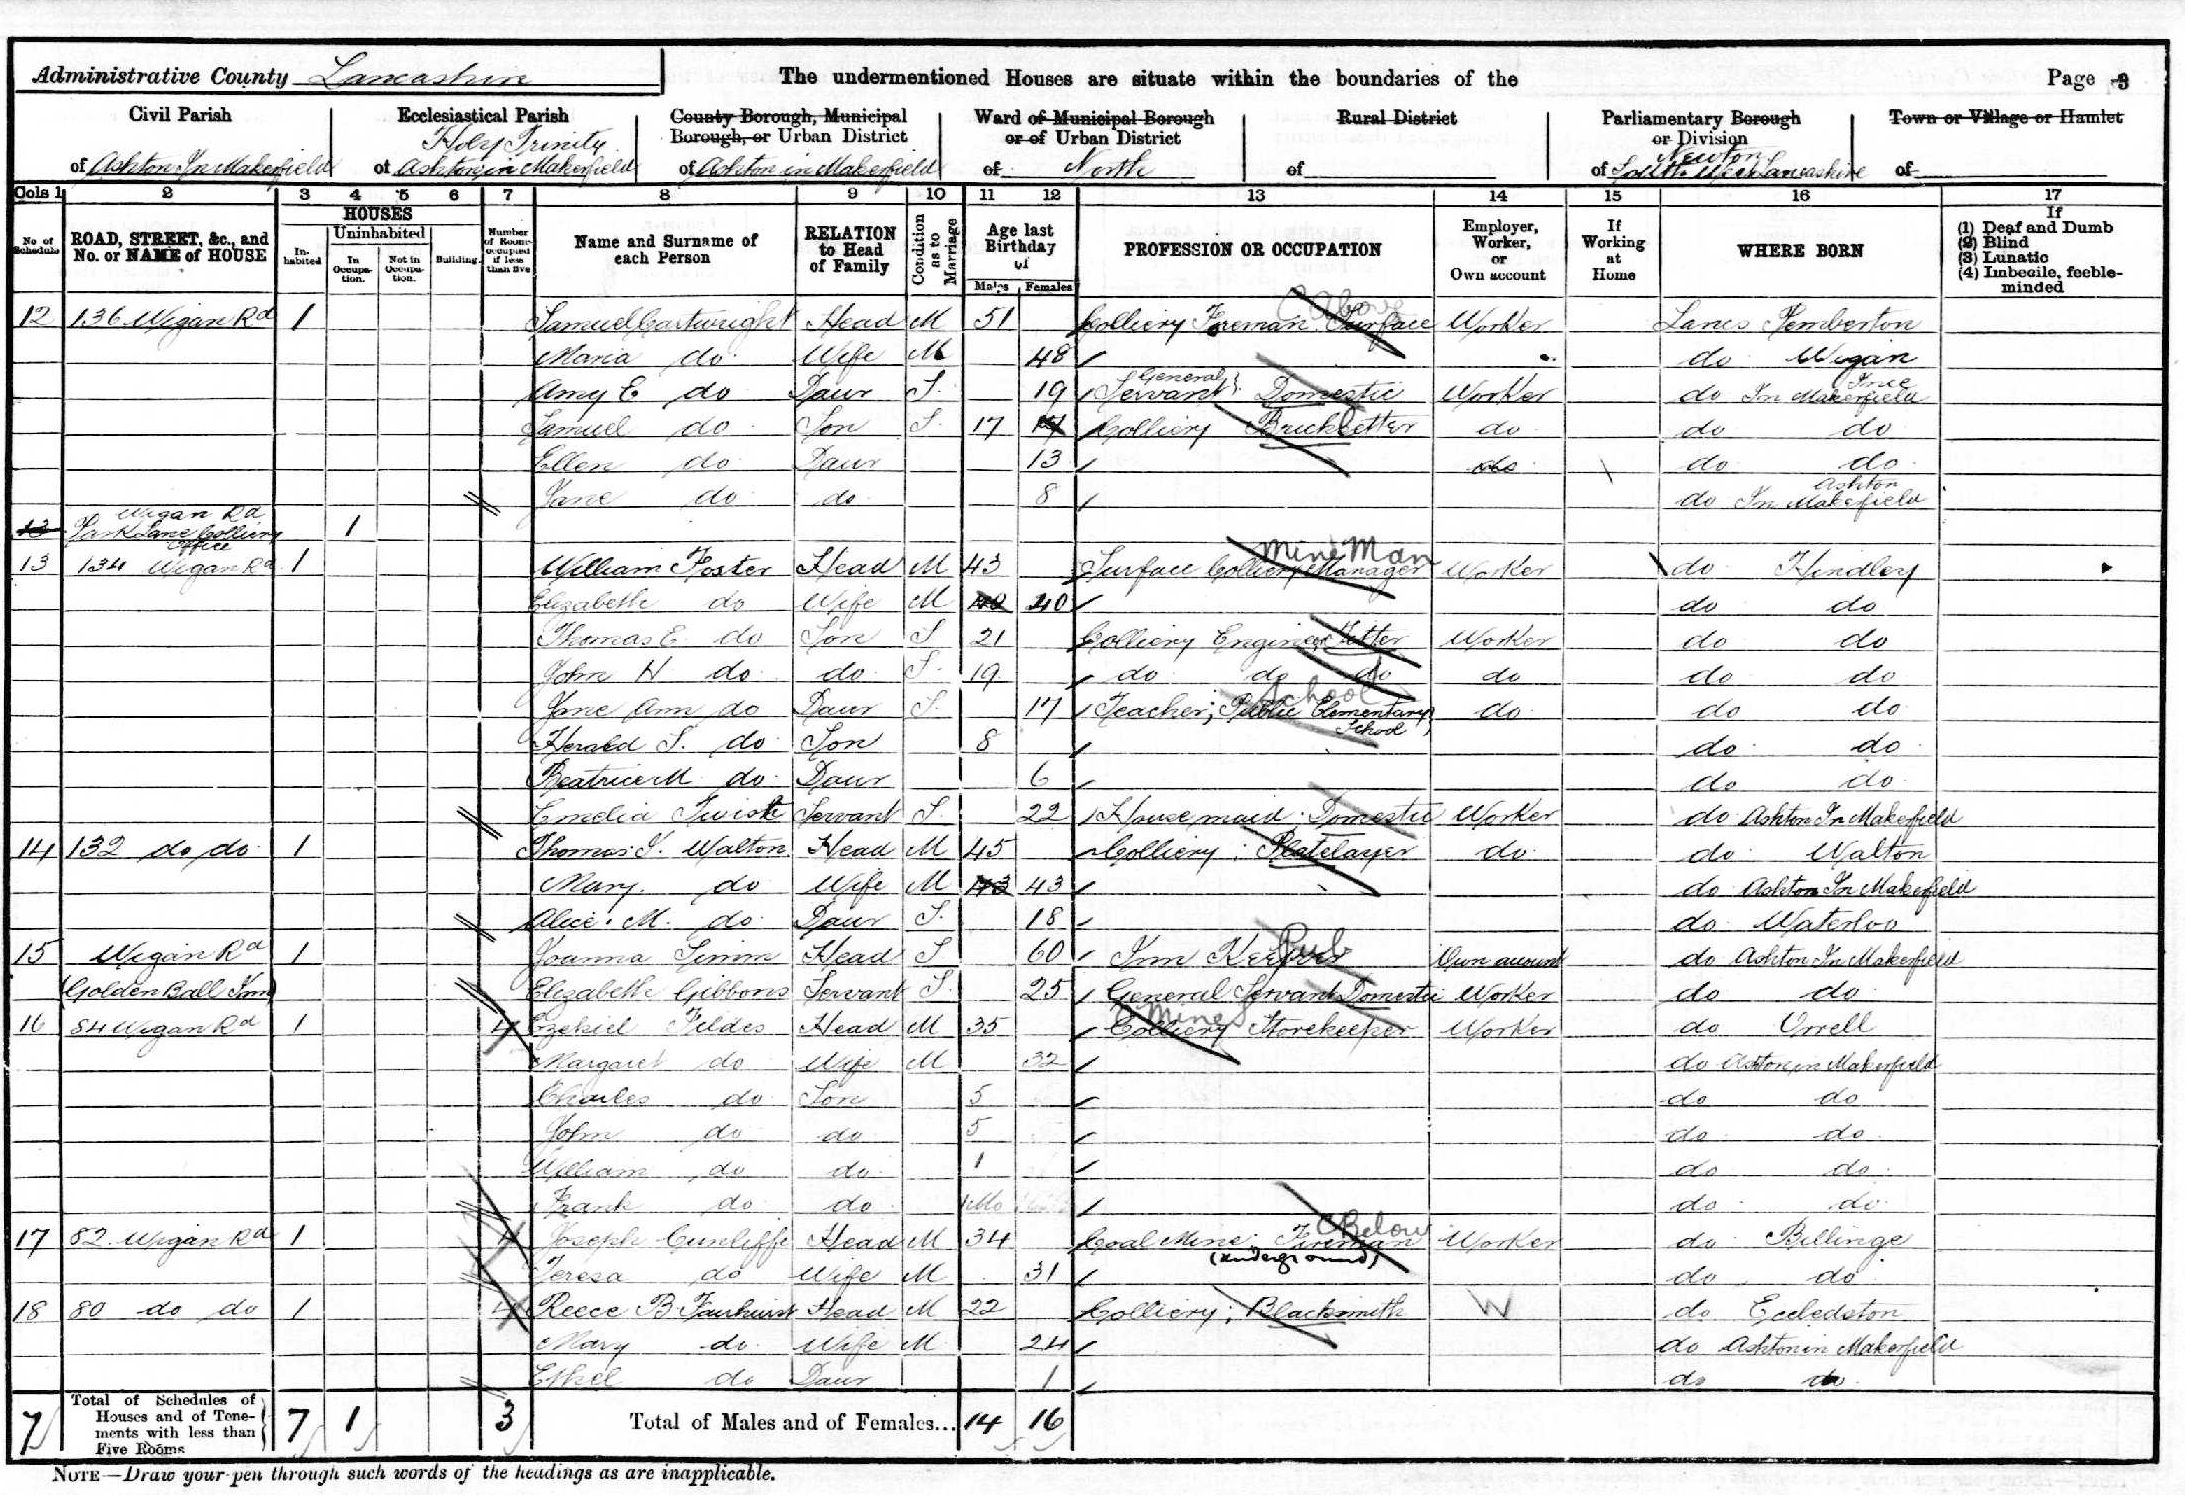 Administrative County Lancashire The undermentioned Houses are situate within the boundaries of the Page 3
Civil Parish Ecclesiastical Parish County Borough, Municipal Borough, or Urban District Ward of Municipal Borough or of Urban District Rural District Parliamentary Borough or Division Town or Village or Hamlet
of Ashton In Makerfield of Holy Trinity Ashton in Makerfield of Ashton in Makerfield of North of of Newton South West Lancashire of
Cols 1 2 3 4 5 6 7 8 9 10 11 12 13 14 15 16 17
No of Schedule ROAD, STREET, &c., and No. or NAME of HOUSE HOUSES Inhabited Uninhabited In Occupation. Not in Occupation. Building. Number of Rooms occupied if less than five Name and Surname of each Person RELATION to Head of Family Condition as to Marriage Age last Birthday of Males Females PROFESSION OR OCCUPATION Employer, Worker, or Own account If Working at Home WHERE BORN If (1) Deaf and Dumb (2) Blind (3) Lunatic (4) Imbecile, feeble-minded
12 136 Wigan Rd 1 Samuel Cartwright Head M 51 Colliery Foreman Surface Above Worker Lancs Pemberton
Maria do Wife M 48 do Wigan
Amy E do Daur S. 19 General Servant Domestic Worker do Ince In Makerfield
Samuel do Son S. 17 17 Colliery Bricksetter do do do
Ellen do Daur 13 do do do
Jane do do 8 do Ashton In Makefield
13 Wigan Rd Park Lane Colliery Office 1
13 134 Wigan Rd 1 William Foster Head M 43 Surface Colliery Manager Mine Man Worker do Hindley
Elizabeth do Wife M 40 40 do do
Thomas E do Son S 21 Colliery Engine Fitter Worker do do
John H do do S. 19 do do do do do do
Jane Ann do Daur S. 17 Teacher; Public Elementary School School do do do
Herald S. do Son 8 do do
Beatrice M do Daur 6 do do
Emelia Twist Servant S. 22 House maid Domestic Worker do Ashton In Makerfield
14 132 do do 1 Thomas S. Walton Head M 45 Colliery; Platelayer do do Walton
Mary do Wife M 43 43 do Ashton In Makerfield
Alice M. do Daur S. 18 do Waterloo
15 Wigan Rd 1 Joanna Simm Head S 60 Inn Keeper Pub Own account do Ashton In Makerfield
Golden Ball Inn Elizabeth Gibbons Servant S. 25 General Servant Domestic Worker do do
16 84 Wigan Rd 1 4 Ezekiel Fildes Head M 35 Colliery Storekeeper Mines Worker do Orrell
Margaret do Wife M 32 do Ashton in Makerfield
Charles do Son 5 do do
John do do 5 do do
William do do 1 do do
Frank do do 1 Mo do do
17 82 Wigan Rd 1 4 Joseph Cunliffe Head M 34 Coal Mine Fireman (underground) Below Worker do Billinge
Teresa do Wife M 31 do do
18 80 do do 1 4 Reece B Fairhurst Head M 22 Colliery; Blacksmith W do Eccledston
Mary do Wife M 24 do Ashton in Makerfield
Ethel do Daur 1 do do
7 Total of Schedules of Houses and of Tenements with less than Five Rooms 7 1 3 Total of Males and of Females... 14 16
NOTE—Draw your pen through such words of the headings as are inapplicable.